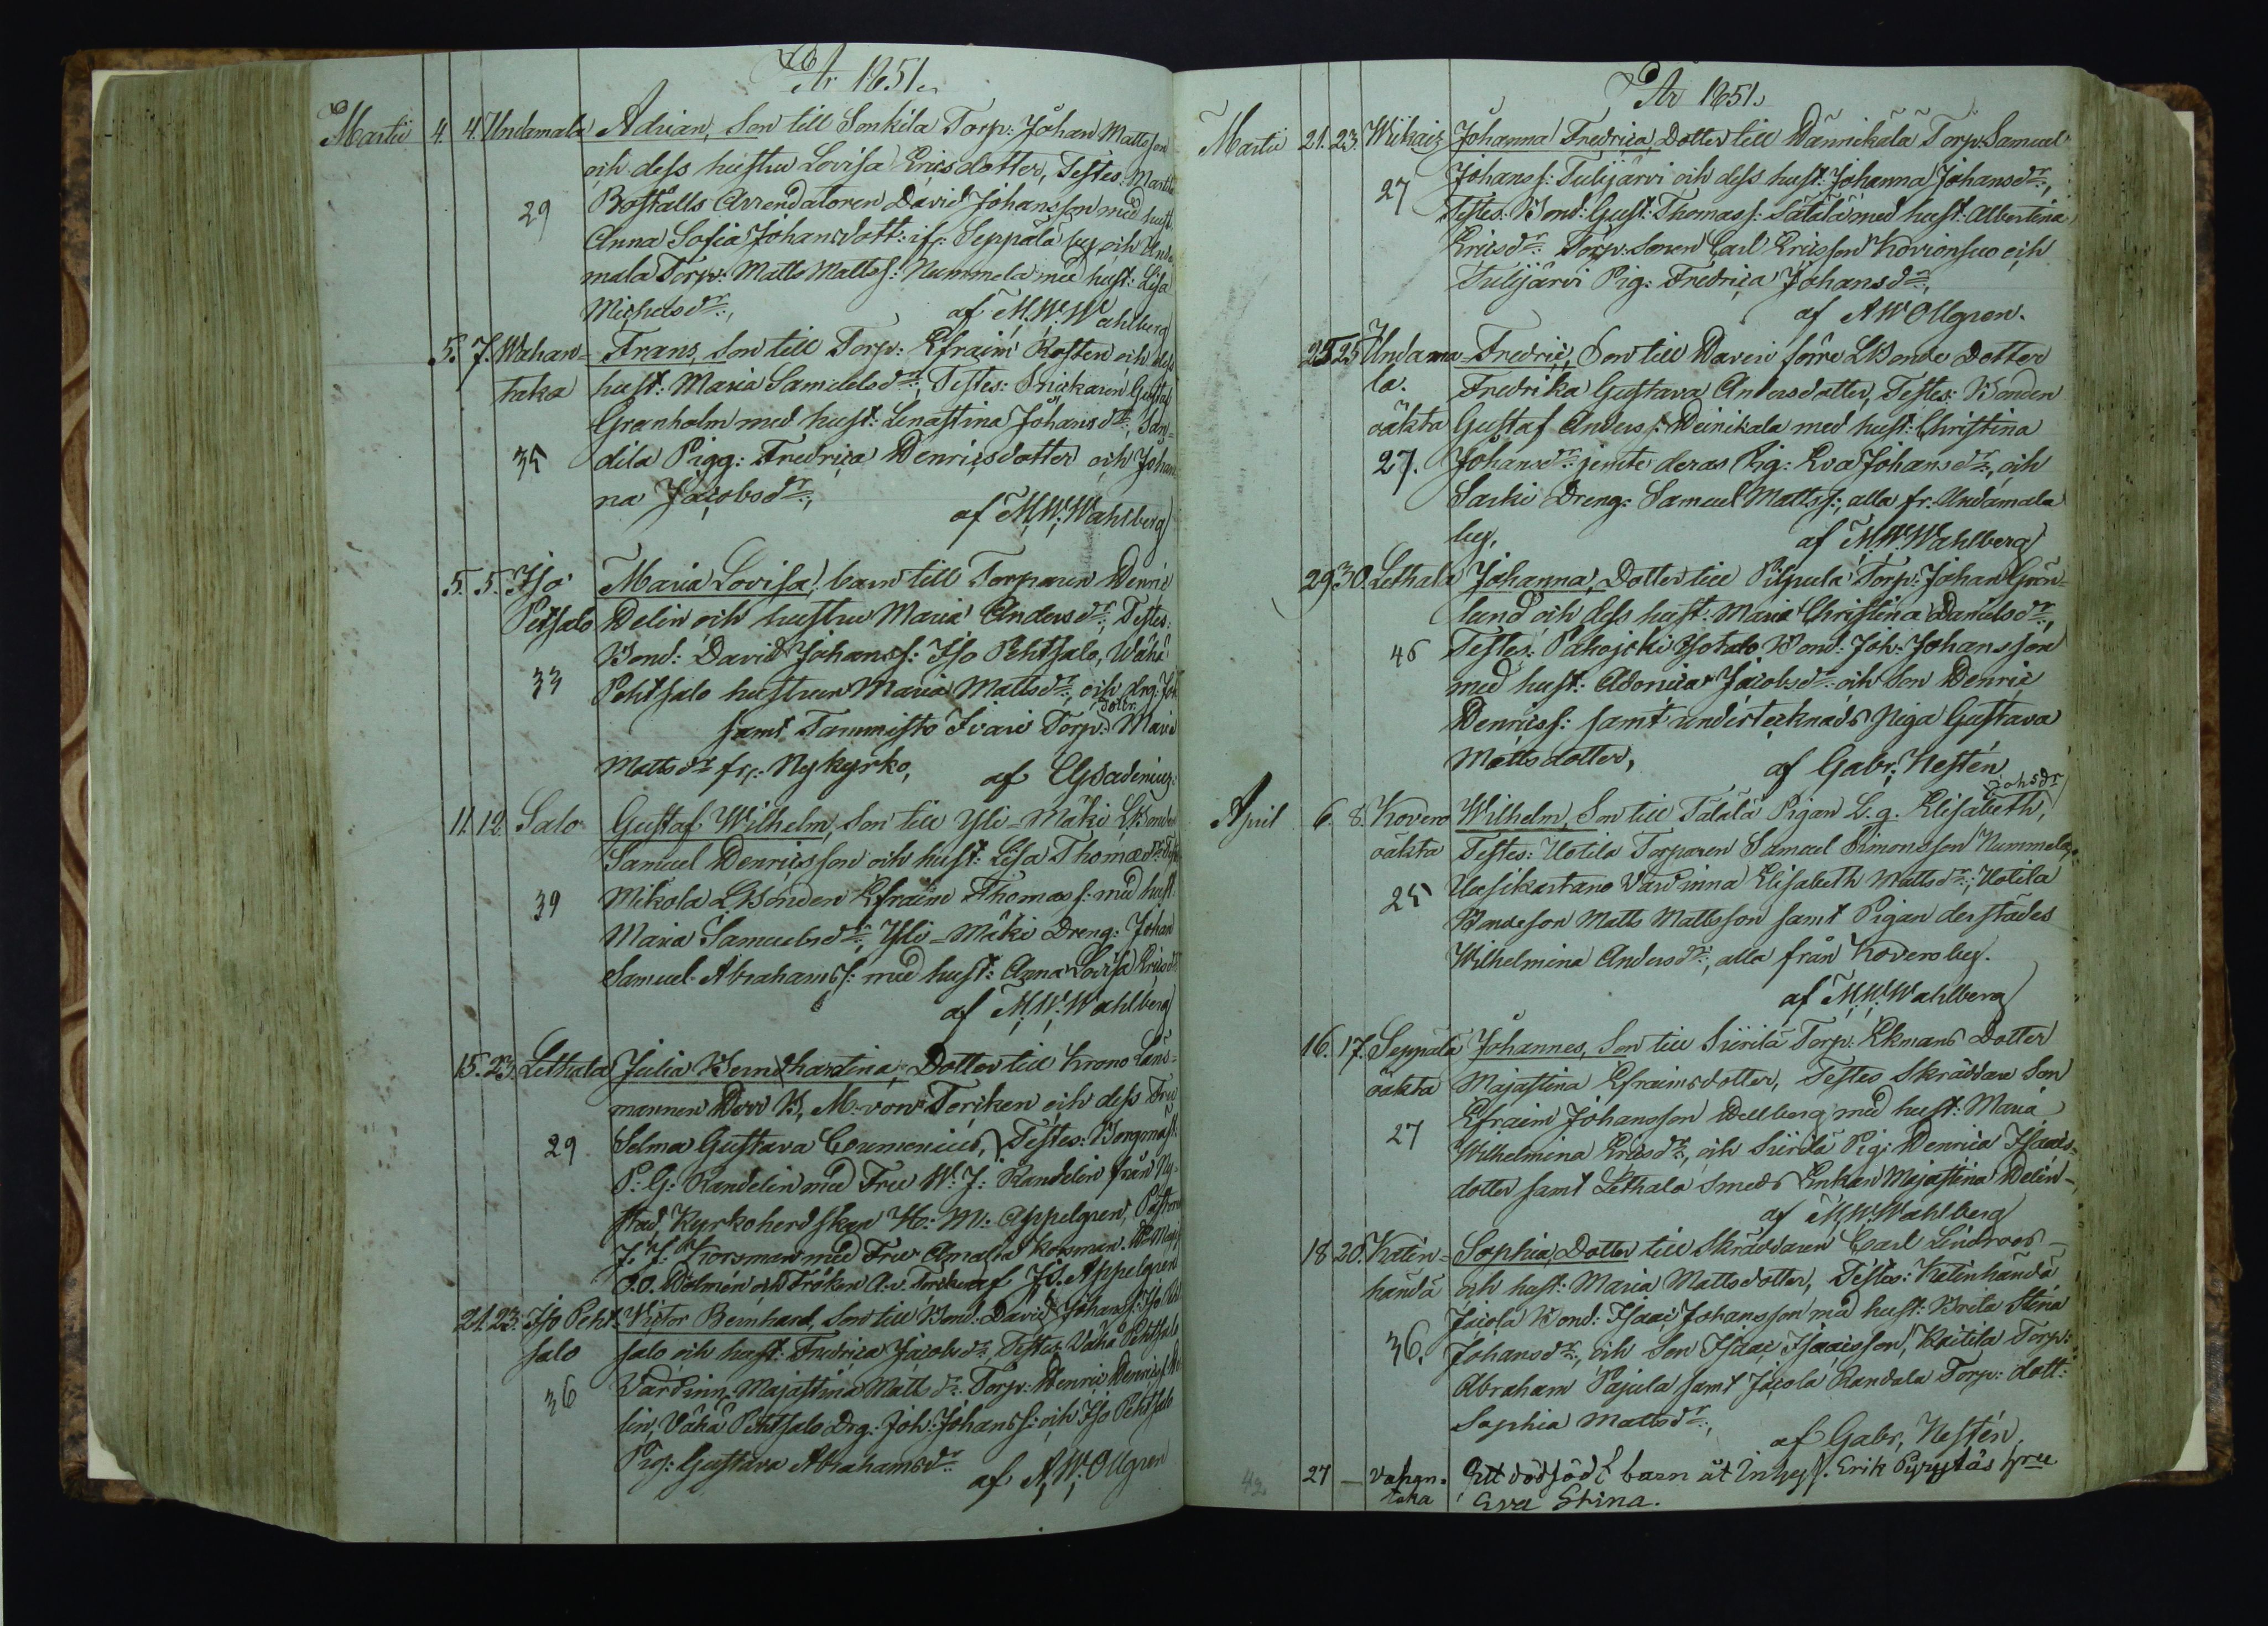 År 1851.
Martii 4. 4. Undamala Adrian, Son till Sonkila Torp: Johan Mattsson
och dess hustru Lovisa Ericsdotter, Testes: Martila
29 Boställs Arrendatoren David Johansson med hust:
Anna Sofia Johansdott: ifr: Seppälä by, och Unda
mala Torp: Matts Mattss: Nummela med hust: Lisa
Michelsdr:, af M. W. Wahlberg
5. 7. Wahan= Frans, Son till Torp: Efraim Rosten och dess
taka hust: Maria Samuelsdr:, Testes: Snickaren Gustaf
Granholm med hust: Lenastina Johansdr:, San=
35 dila Pigg: Fredrica Henricsdotter och Johan
na Jacobsdr:,
af M. W. Wahlberg
5. 5. Iso Maria Lovisa, barn till Torparen Henric
Pehtsalo Delin och hustru Maria Andersdr:, Testes:
Bond: David Johanss: Iso Pehtsalo, Wähä
33 Pehtsalo hustrun Maria Mattsdr:, och drg: Joh
samt Tammisto Ivari Torp: dotter Maria
Mattsdr fr: Nykyrko, af
11. 12. Salo Gustaf Wilhelm, Son till Yli=Mäki LBonden
Samuel Henricsson och hust: Lisa Thomædr: Testes
39 Mikola LBonden Efraim Thomass: med hust:
Maria Samuelsdr:, Yli=Mäki Dreng: Johan
Samuel Abrahamss: med hust: Anna Lovisa Ericsdr
af M. W. Wahlberg
15. 23. Lethala Julia Berndhardina, Dotter till Krono Läns=
mannen Herr B. M. von Torcken och dess Fru
29 Selma Gustava Coumenius, Testes: Borgmäst:
P: G: Randelin med Fru W: J: Randelin från Ny=
stad, Kyrkoherdskan H: M: Appelgren, Pastorn
J. J. Korsman med Fru Amalia Korsman.
O. O. Holmén och Fröken A. v. Torcken af Js. Appelgren
21. 23. Iso Peht= Victor Bernhard, Son till Bond: David Johanss: Iso Peh
salo salo och hust: Fredrica Jacobsdr: Testes: Vähä Pehtsalo
36 Värdinn: Majastina Mattsdr: Torp: Henric Henricss: De
lin, Vähä Pehtsalo Drg: Joh: Johanss: och Iso Pehtsalo
Pig: Gustava Abrahamsdr:
af A. W. Ollgren
År 1851.
Martii 21. 23. Wiikaiz Johanna Fredrica, Dotter till Männikälä Torp: Samuel
27 Johanss: Tulijärvi och dess hust: Johanna Johansdr:,
Testes: Bond: Gust: Thomass: Sätälä med hust: Albertina
Ericsdr: Torp: Sonen Carl Ericsson Kovionsuo och
Tulijärvi Pig: Fredrica Johansdr:,
af A W Ollgren.
25 25 Undama= Fredric, Son till Haveri förre LBonde Dotter
la. Fredrika Gustava Andersdotter, Testes: Bonden
oäkta Gustaf Anderss: Heinikala med hust: Christina
27. Johansdr: jemte deras Pig: Eva Johansdr:, och
Saski Dreng: Samuel Mattss:, alla fr: Undamala
by. af M. W. Wahlberg
29 30. Lethala Johanna, Dotter till Pilpula Torp: Johan Grön=
lund och dess hust: Maria Christina Danielsdr:,
46 Testes: Pahojoki Isotalo Bond: Joh: Johansson
med hust: Adorica Jacobsdr: och Son Henric
Henricss: samt undertecknads Piga Gustava
Mattsdotter, af Gabr. Hestén
April 6. 8. Kovero Wilhelm, Son till Tälälä Pigan L. g. Elisabeth, Johsdr
oäkta Testes: Uotila Torparen Samuel Simonsson Nummela,
25 Uusikartano Värdinna Elisabeth Mattsdr:, Uotila
Bondeson Matts Mattsson samt Pigan derstädes
Wilhelmina Andersdr:, alla från Kovero by.
af M. W. Wahlberg
16. 17. Seppälä Johannes, Son till Siirilä Torp: Ekmans Dotter
oäkta Majastina Efraimsdotter, Testes Skräddare Son
27 Efraim Johansson Hellberg med hust: Maria
Wilhelmina Ericsdr:, och Siirilä Pig: Henrica Isaacs=
dotter samt Lethala Smeds Enkan Majastina Helin
af M. W. Wahlberg
18 20. Katin= Sophia, Dotter till Skräddaren Carl Lindroos
händä och hust: Maria Mattsdotter, Testes: Katinhändä
Jacola Bond: Isaac Johansson med hust: Brita Stina
36. Johansdr:, och Son Isaac Isaacsson, Kaitila Torp:
Abraham Pajula samt Jacola Randala Torp: dott:
Sophia Mattsdr:,
af Gabr. Hestén.
27 — Vahan= Ett dödfödt barn åt Inhys. Erik Pyrytäs hru
taka Eva Stina.
42.